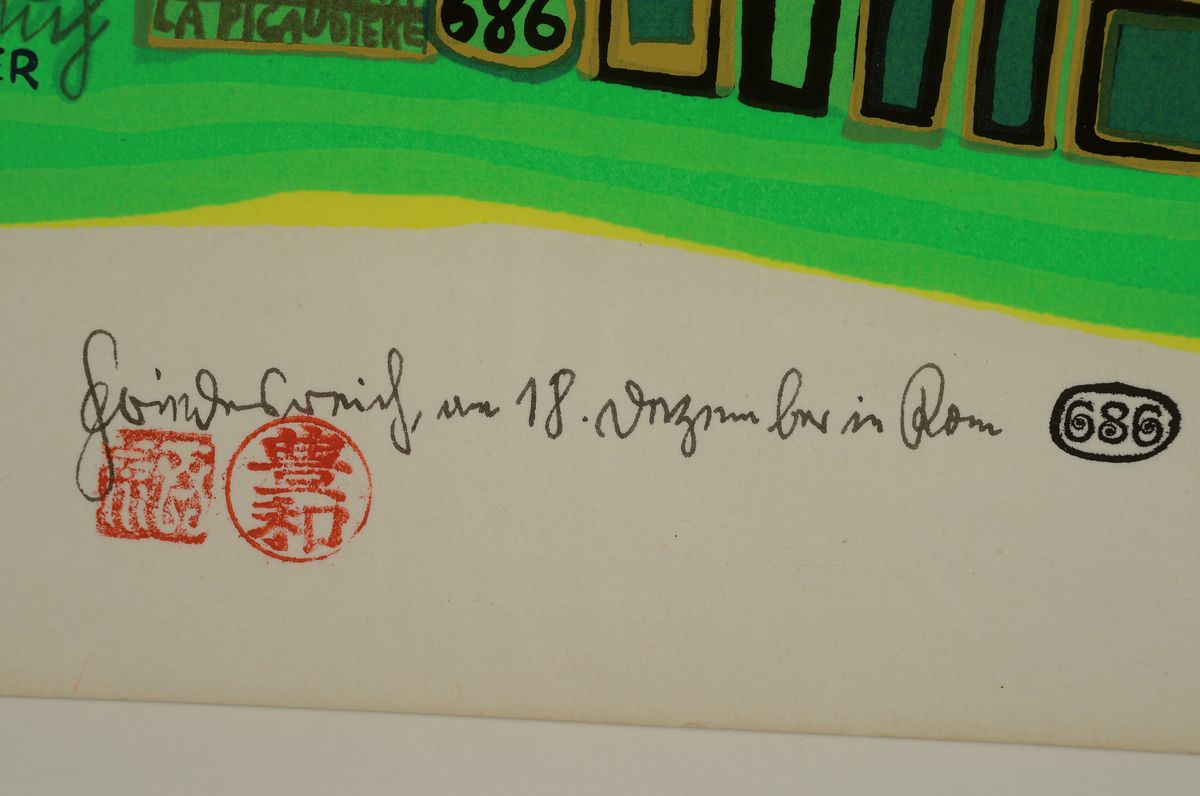 ER
LA PICAUDIERE
686
Friedensreich, am 18. Dezember in Rom
686
豊和